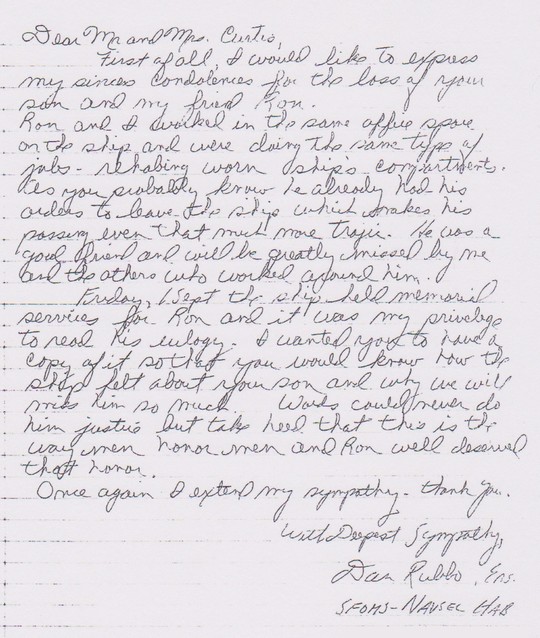 Dear Mr and Mrs. Curtis,
First of all, I would like to express
my sincer condolences for the loss of your
son and my friend Ron.
Ron and I worked in the same office space
on the ship and were doing the same type of
jobs - rehabing worn ship's compartments.
As you probably know he already had his
orders to leave the ship which makes his
passing even that much more tragic. He was a
good friend and will be greatly missed by me
and the others who worked around him.
Friday, 1 Sept the ship held memorial
services for Ron and it was my privelege
to read his eulogy. I wanted you to have a
copy of it so that you would know how the
ship felt about your son and why we will
miss him so much. Words could never do
him justice but take heed that this is the
way men honor men and Ron well deserved
that honor.
Once again I extend my sympathy. Thank you.
With Deepest Sympathy,
Dan Rubbo, Ens.
SFOMS-NAVSEC HAB